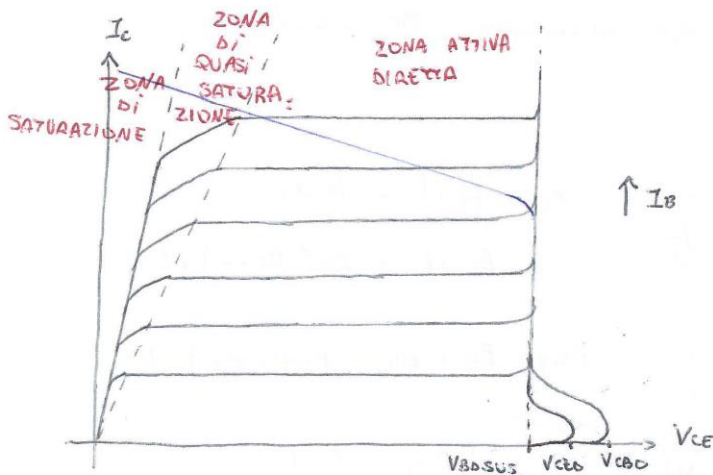 I_C
ZONA DI SATURAZIONE
ZONA
DI
QUASI
SATURA-
ZIONE
ZONA ATTIVA
DIRETTA
↑ I_B
V_BDSUS
V_CEO
V_CBO
V_CE